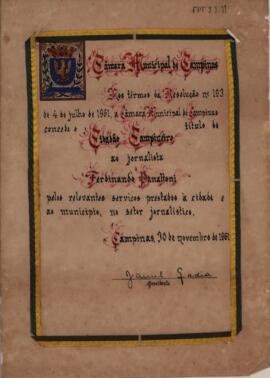 Câmara Municipal de Campinas
Nos têrmos da Resolução nº 163
de 4 de julho de 1961, a Câmara Municipal de Campinas
concede o título de
Cidadão Campineiro
ao jornalista
Ferdinando Panattoni
pelos relevantes serviços prestados à cidade e
ao município, no setor jornalístico.
Campinas, 30 de novembro de 1961
Presidente